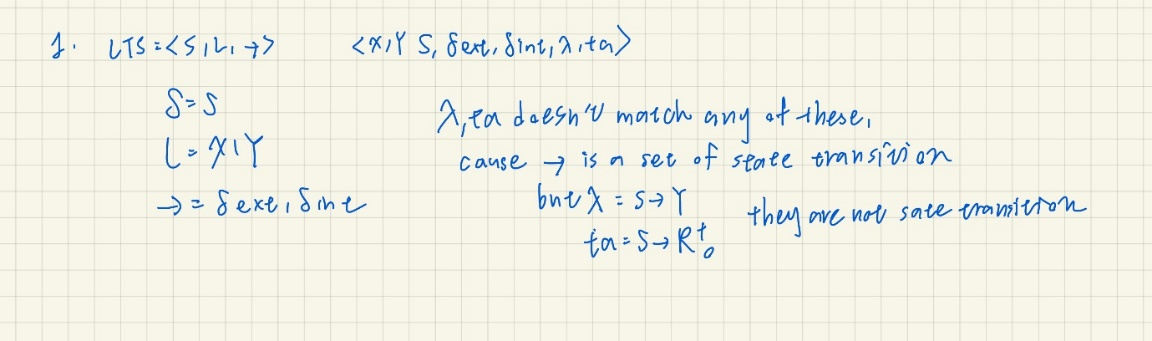 1. LTS = <S, L, →>   <X, Y S, δext, δint, λ, ta>
S = S
L = X, Y
→ = δext, δint
λ, ta doesn't match any of these,
cause → is a set of state transition
but λ = S → Y
ta = S → R⁺₀
they are not sate transition